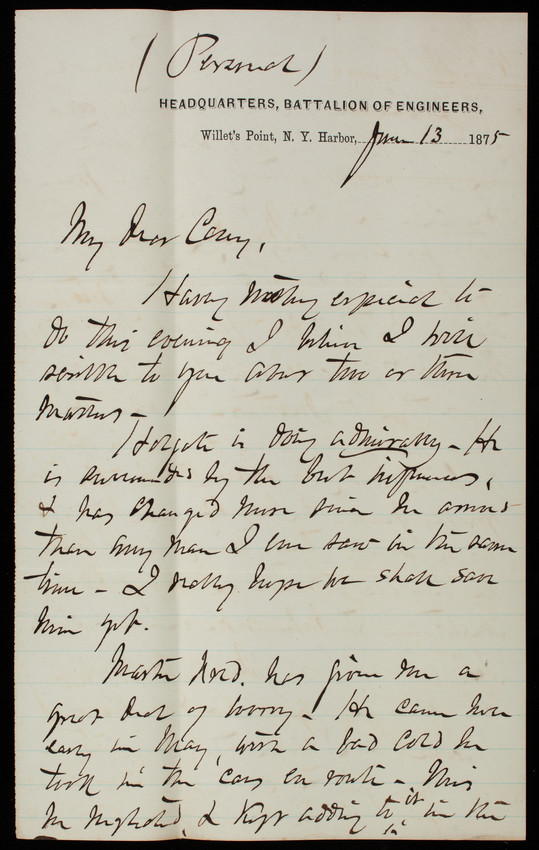 (Personal)
HEADQUARTERS, BATTALION OF ENGINEERS,
Willet's Point, N. Y. Harbor, June 13 1875
My Dear Casey,
Having nothing especial to
do this evening I believe I will
scribble to you about two or three
matters -
Holgate is doing admirably - He
is surrounded by the best influences,
& has changed more since he arrived
than any man I ever saw in the same
time - I really hope we shall save
him yet.
Master Fred. has given me a
great deal of worry - He came here
early in May, with a bad cold he
took in the cars en route - This
he neglected, & kept adding to it in the